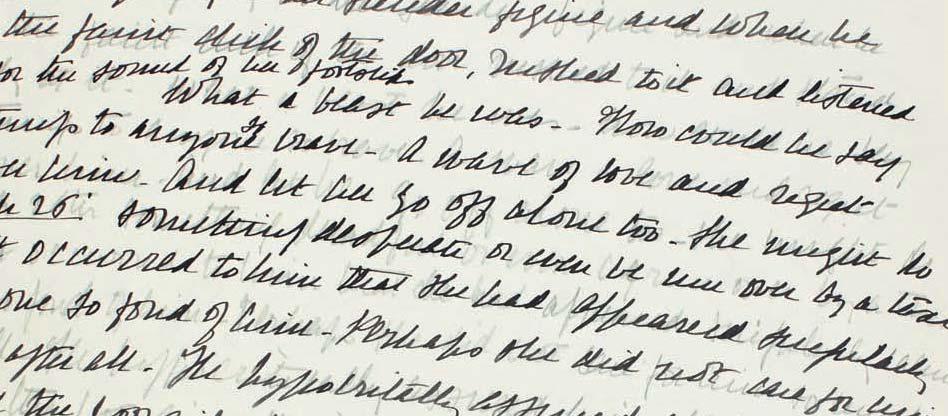 slender figure and when he
the faint click of the door, rushed to it and listened
for the sound of her footsteps
What a beast he was - How could he say
to anyone - A wave of love and regret
him - And let her go off alone too - She might do
something desperate or even be run over by a
occurred to him that she had appeared singularly
one so fond of him - Perhaps she did not care for
after all - The hypocritically
the